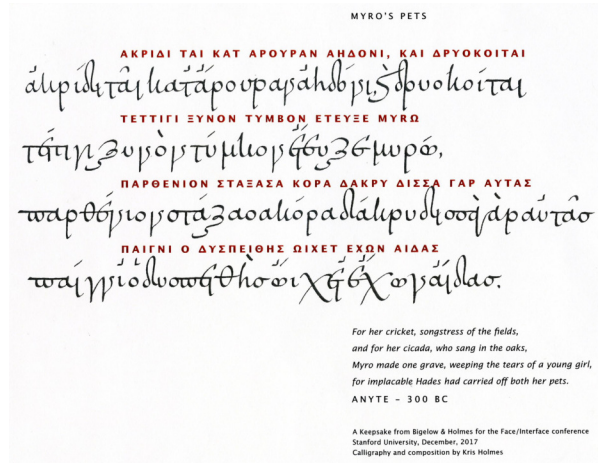 MYRO'S PETS
ΑΚΡΙΔΙ ΤΑΙ ΚΑΤ ΑΡΟΥΡΑΝ ΑΗΔΟΝΙ, ΚΑΙ ΔΡΥΟΚΟΙΤΑΙ
ἀκρίδι ταῖ κατ ἄρουραν ἀηδόνι, καὶ δρυοκοίται
ΤΕΤΤΙΓΙ ΞΥΝΟΝ ΤΥΜΒΟΝ ΕΤΕΥΞΕ ΜΥRΩ
τέττιγι ξυνὸν τύμβον ἔτευξε μυρώ,
ΠΑΡΘΕΝΙΟΝ ΣΤΑΞΑΣΑ ΚΟΡΑ ΔΑΚΡΥ ΔΙΣΣΑ ΓΑΡ ΑΥΤΑΣ
παρθένιον στάξασα κόρα δάκρυ δισσὰ γὰρ αὐτᾶσ
ΠΑΙΓΝΙ Ο ΔΥΣΠΕΙΘΗΣ ΩΙΧΕΤ ΕΧΩΝ ΑΙΔΑΣ
παίγνι ὁ δυσπειθὴσ ὤιχετ ἔχων ἀίδασ.
For her cricket, songstress of the fields,
and for her cicada, who sang in the oaks,
Myro made one grave, weeping the tears of a young girl,
for implacable Hades had carried off both her pets.
ANYTE – 300 BC
A Keepsake from Bigelow & Holmes for the Face/Interface conference
Stanford University, December, 2017
Calligraphy and composition by Kris Holmes